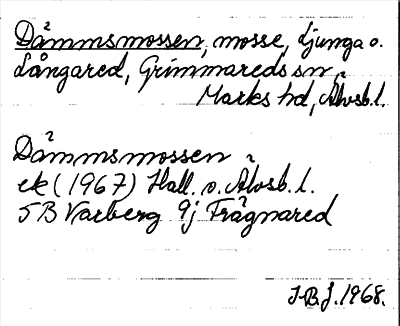 Dämmsmossen, mosse, Ljunga o.
Långared, Grimmareds sn,
Marks hd, Älvsb. l.
Dämmsmossen
ek (1967) Hall. o. Älvsb. l.
5B Varberg 9j Frägnared
J.B.J. 1968.